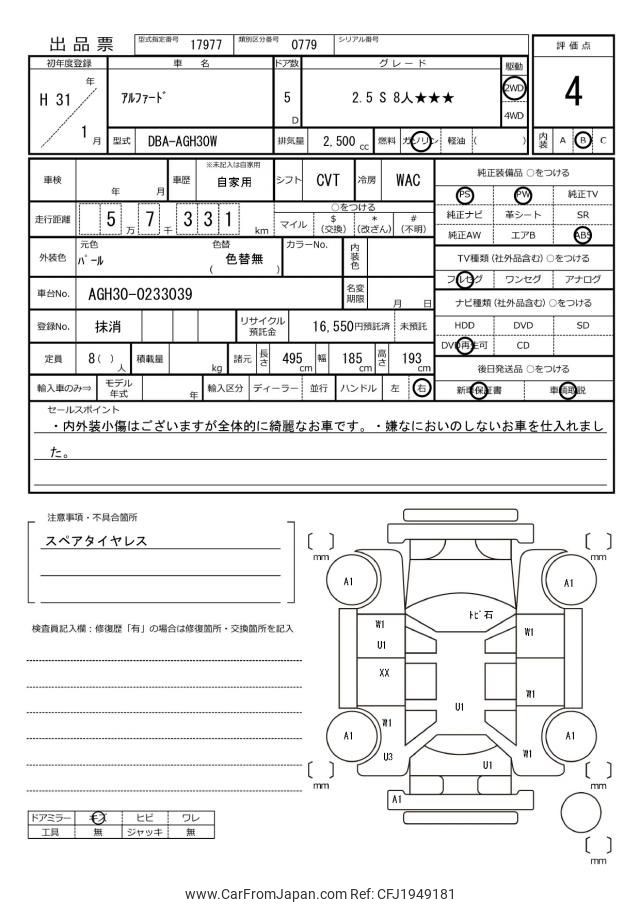 出品票
型式指定番号 17977 類別区分番号 0779 シリアル番号
評価点
4
初年度登録 車名 ドア数 グレード 駆動
H 31 年 1 月
アルファード 5 D 2.5 S 8人★★★ 2WD 4WD
型式 DBA-AGH30W 排気量 2,500 cc 燃料 ガソリン 軽油 ( )
内装 A B C
車検 年 月 車歴 ※未記入は自家用 自家用 シフト CVT 冷房 WAC
走行距離 5 万 7 千 3 3 1 km
○をつける
マイル $ (交換) * (改ざん) # (不明)
外装色 元色 パール 色替 ( 色替無 ) カラーNo. 内装色
車台No. AGH30-0233039 名変期限 月 日
登録No. 抹消 リサイクル預託金 16,550円預託済 未預託
定員 8( )人 積載量 kg 諸元 長さ 495cm 幅 185cm 高さ 193cm
輸入車のみ⇒ モデル年式 年 輸入区分 ディーラー 並行 ハンドル 左 右
純正装備品 ○をつける
PS PW 純正TV
純正ナビ 革シート SR
純正AW エアB ABS
TV種類 (社外品含む) ○をつける
フルセグ ワンセグ アナログ
ナビ種類 (社外品含む) ○をつける
HDD DVD SD
DVD再生可 CD
後日発送品 ○をつける
新車保証書 車輌取説
セールスポイント
・内外装小傷はございますが全体的に綺麗なお車です。・嫌なにおいのしないお車を仕入れまし
た。
注意事項・不具合箇所
スペアタイヤレス
検査員記入欄：修復歴「有」の場合は修復箇所・交換箇所を記入
ドアミラー キズ ヒビ ワレ
工具 無 ジャッキ 無
[ ] mm [ ] mm
A1 A1
トビ石
W1 W1
U1
XX
W1
U1
W1
A1 A1
U3 W1
U1
[ ] mm [ ] mm
A1
[ ] mm
www.CarFromJapan.com Ref: CFJ1949181